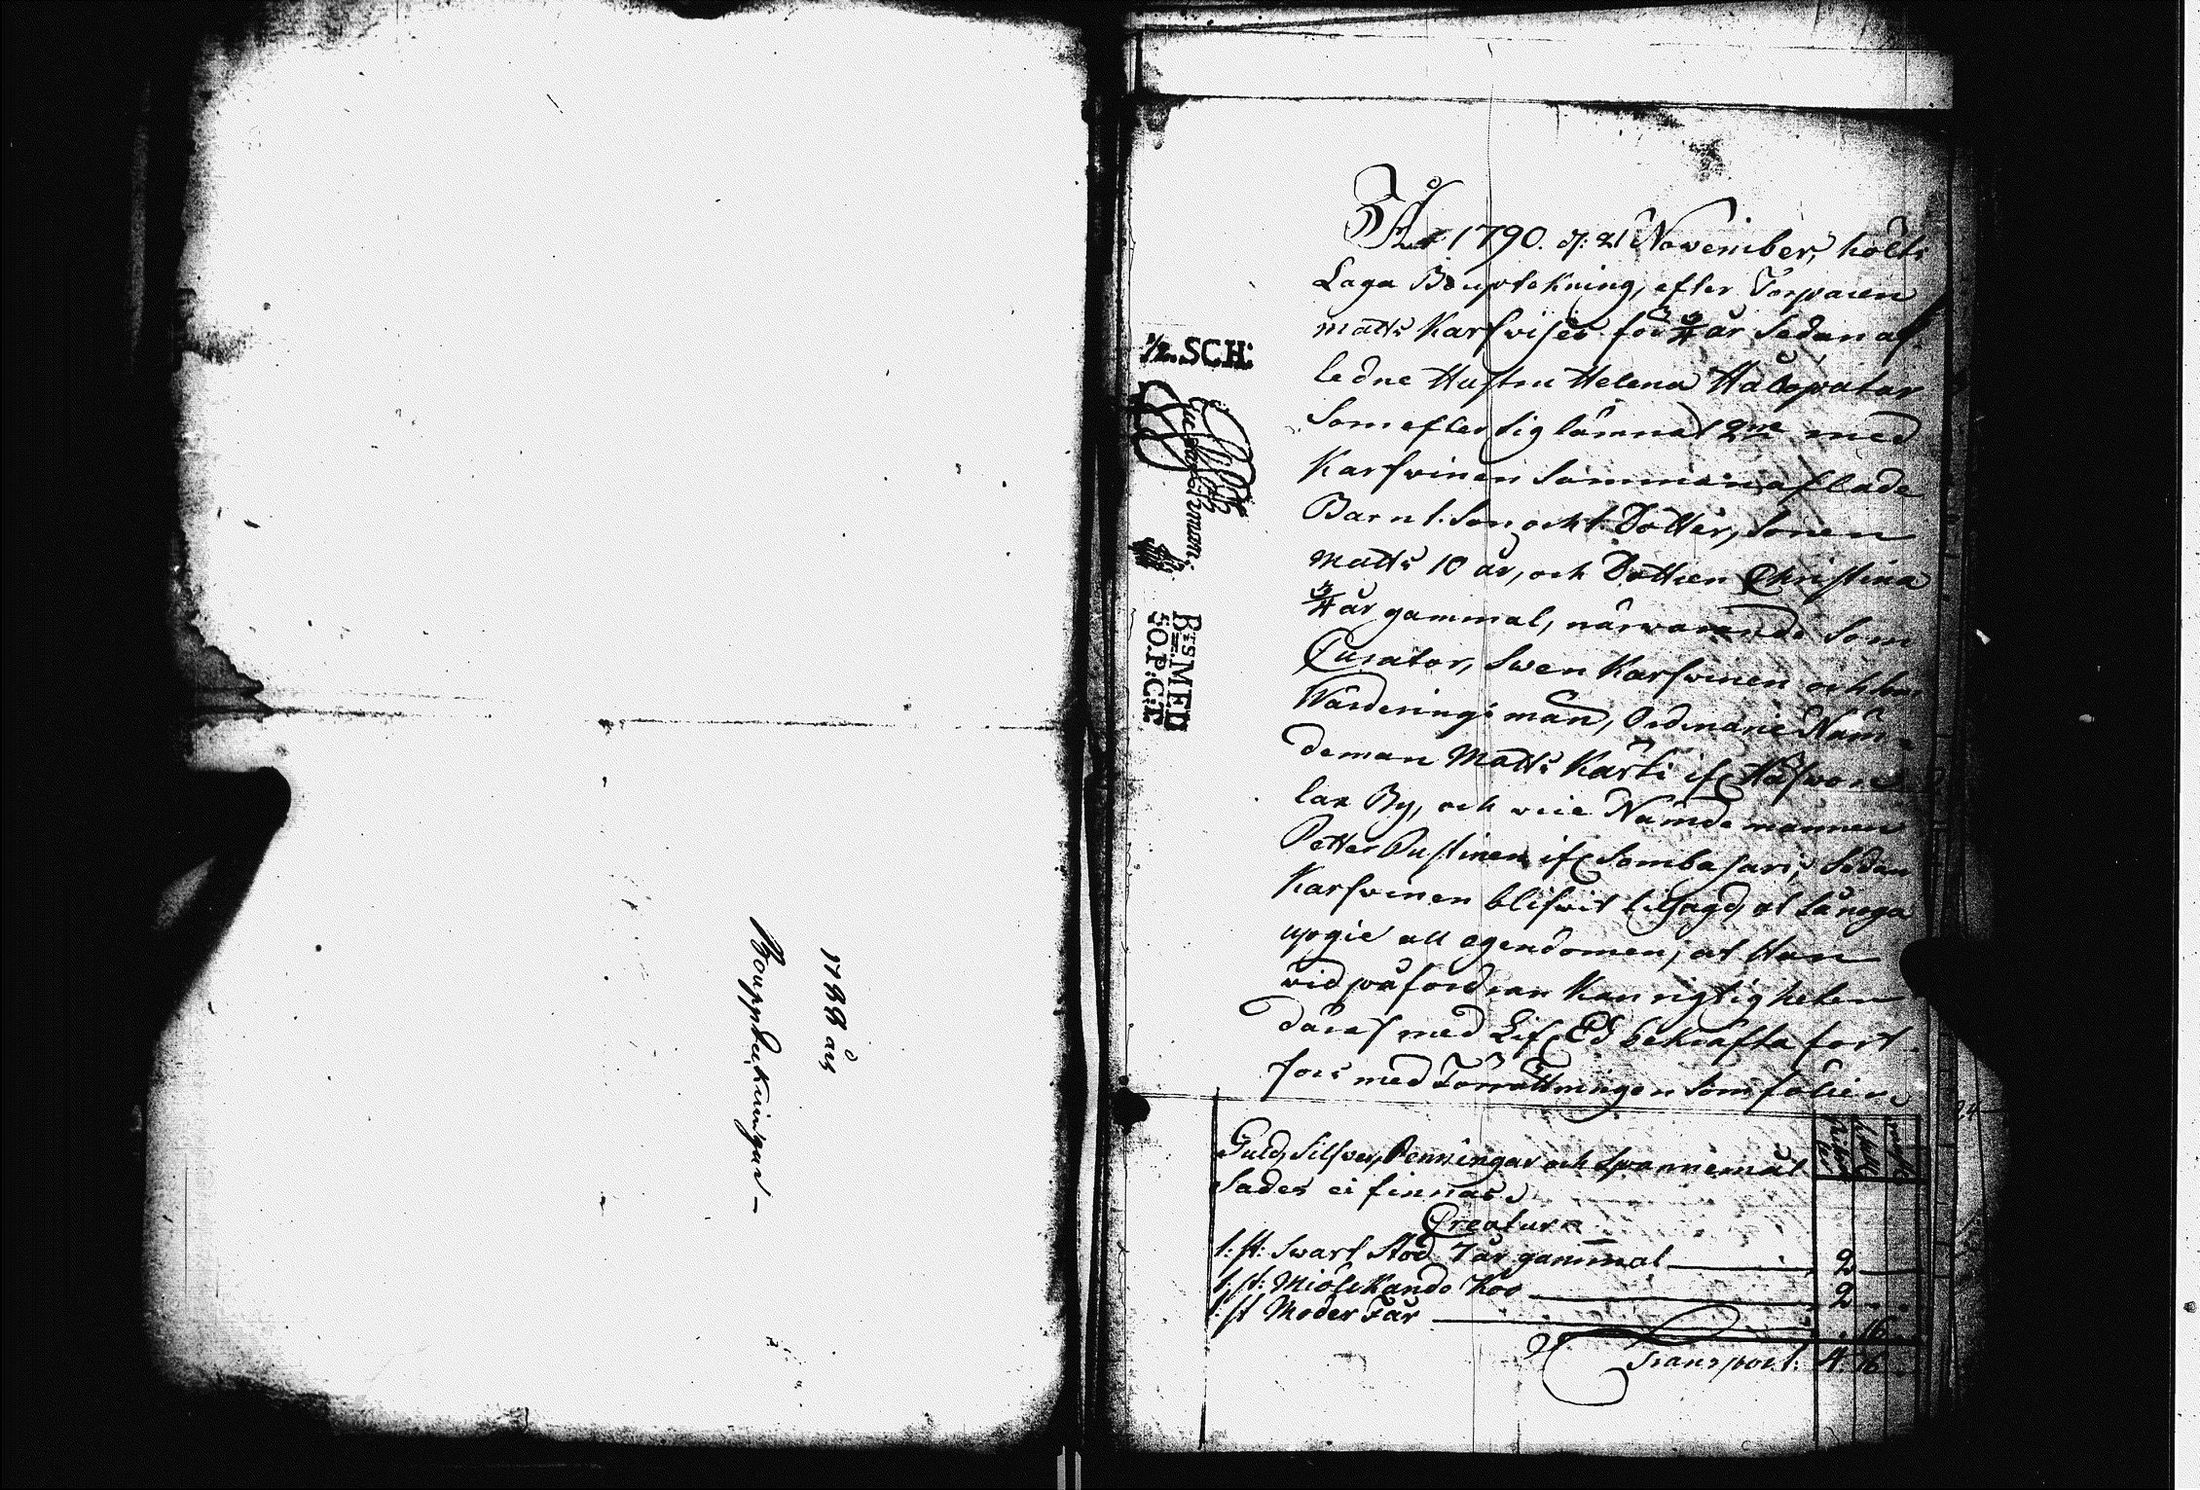 1788 års
Bouppteckningar
1/2. SCH:
Bts MED
50. P: C:T
År 1790. d: 21 November, hölts
Laga Bouptekning, efter Torparen
Matts Karfwises för 3/4 år sedan af
ledne Hustru Helena
Som efter sig lämnat 2ne med
Karfwinen sammanaflade
Barn 1. Son och 1. Dotter, Sonen
Matts 10 år, och Dottren Christina
3/4 år gammal, närwarande Som
Curator, Swen Karfwinen och
Wärderings män, Ordinarie Näm-
deman Matts Kärki if
lax By, och Nämdemannen
Petter Pustinen if Sombajari, Sedan
Karfwinen blifwit tilsagd, at
upgie all egendomen, at Han
vid påfordran kan rigtigheten
däraf med Lif. Ed bekräfta fort-
fors med Förrättningen som följer
Guld, Silfwer, Penningar och Spannemål
Sades ei finnas.
Creatur
1: st: Swart Stod 7 år gammal 2
1: st: Miölckande Koo 2
1: st Moder Får 16
Transport: 4. 16